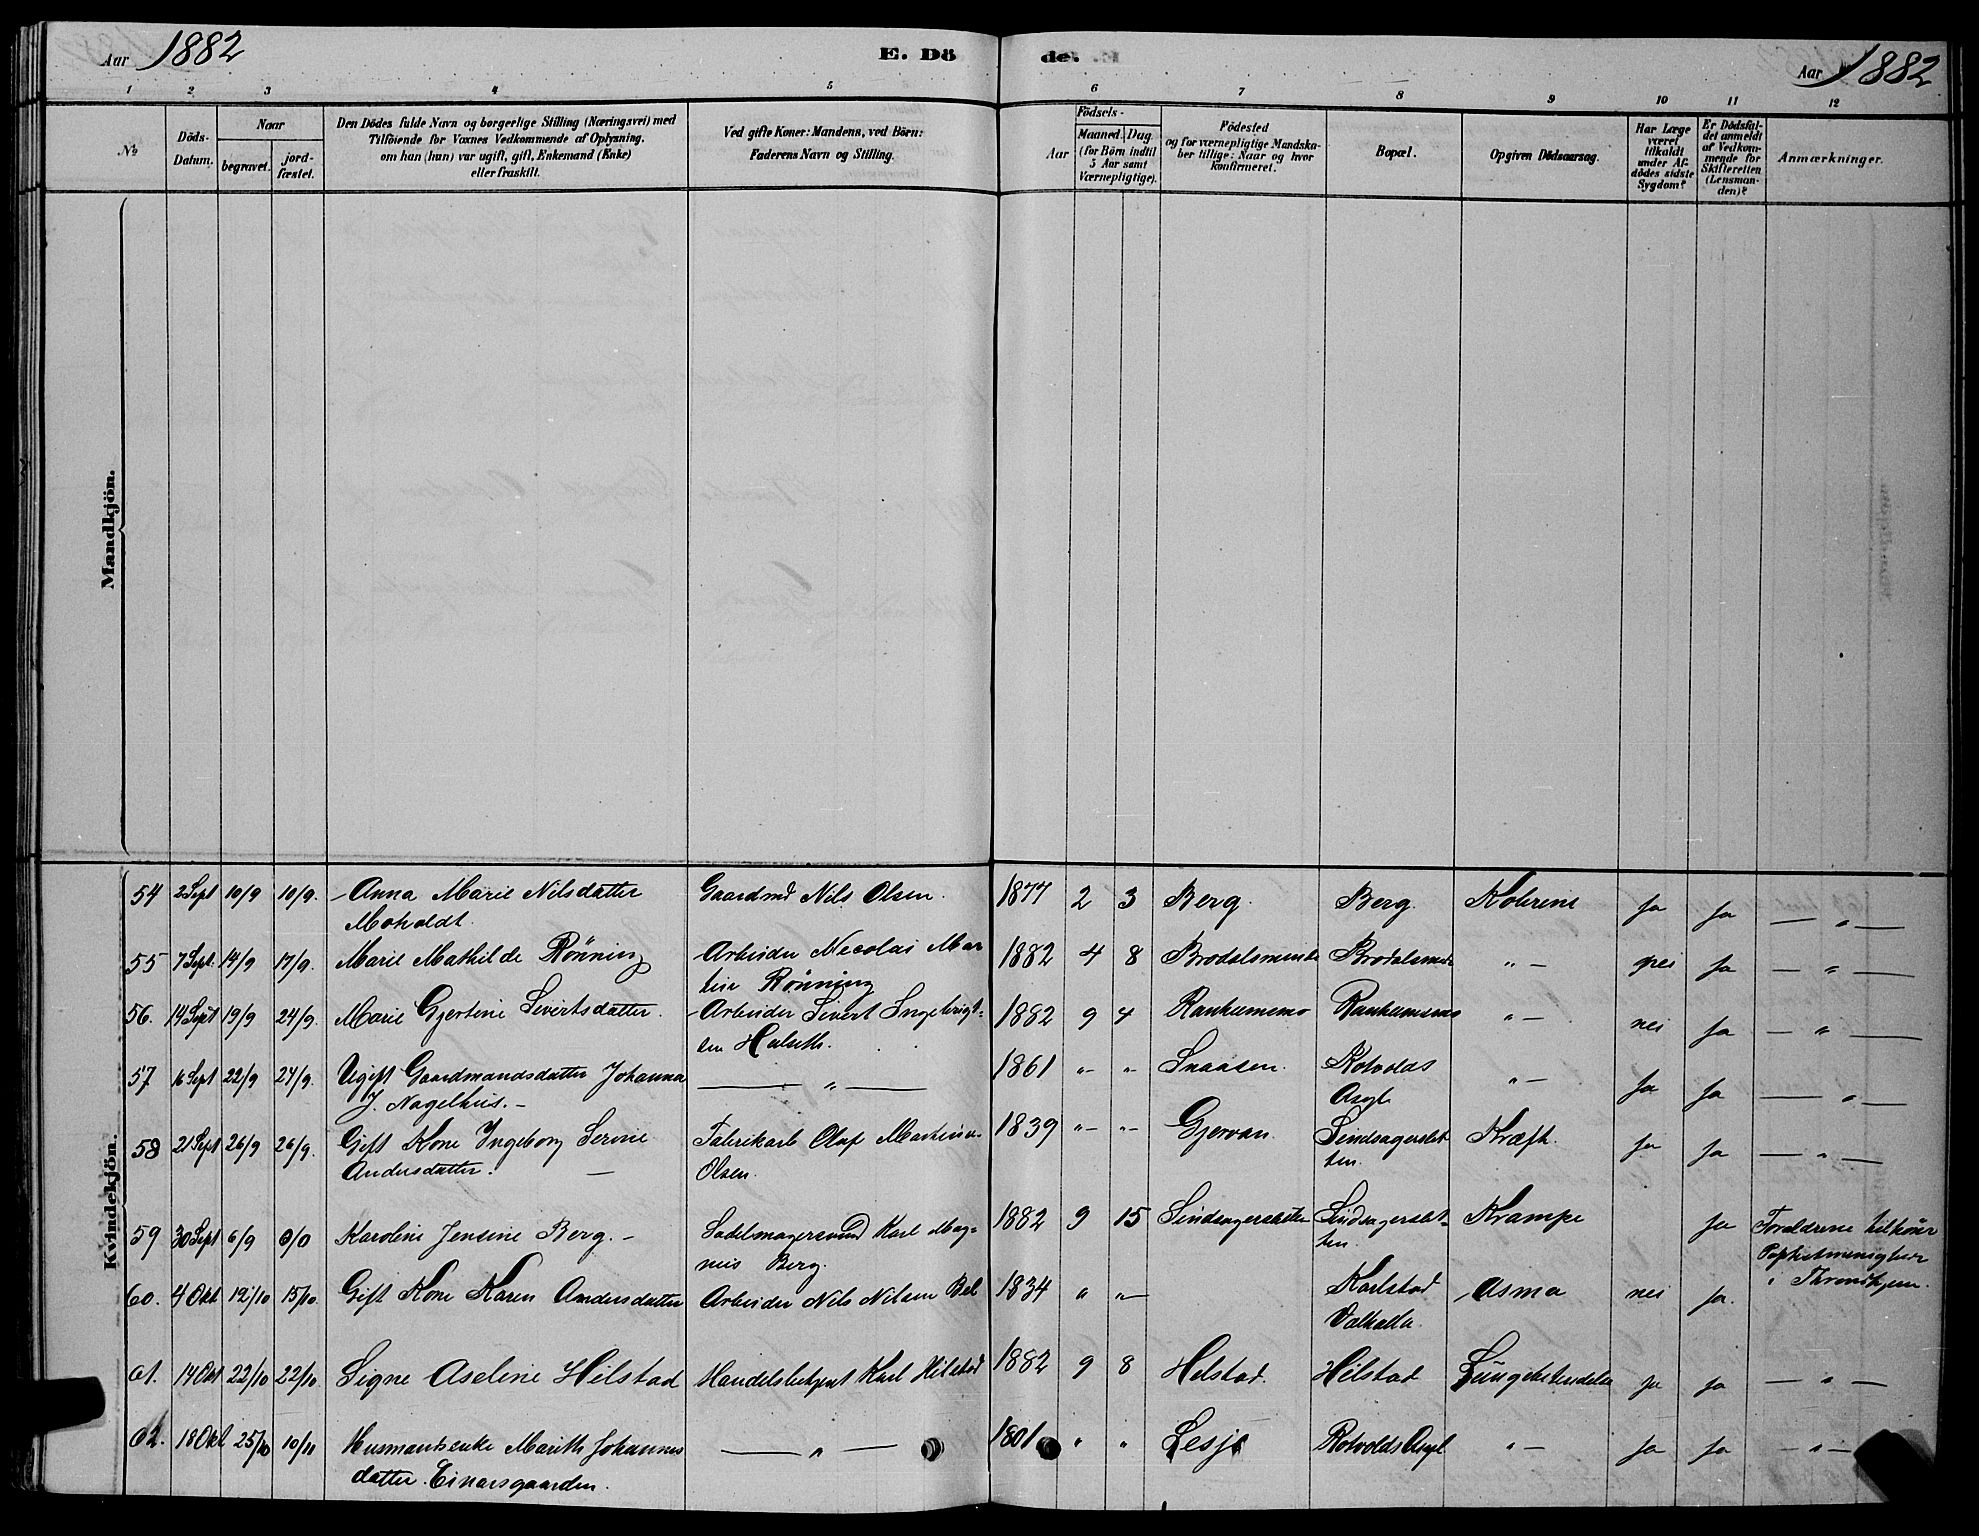 Aar 1882
E. Dö
de.
Aar 1882
1 2 3 4 5 6 7 8 9 10 11 12
No
Döds-
Datum.
Naar
begravet.
jord-
fæstet.
Den Dödes fulde Navn og borgerlige Stilling (Næringsvei) med
Tilföiende for Voxnes Vedkommende af Oplysning.
om han (hun) var ugift, gift, Enkemand (Enke)
eller fraskilt.
Ved gifte Koner: Mandens, ved Börn:
Faderens Navn og Stilling.
Födsels-
Aar
Maaned.
Dag.
(for Börn indtil
5 Aar samt
Værnepligtige).
Födested
og for værnepligtige Mandska-
ber tillige: Naar og hvor
konfirmeret.
Bopæl.
Opgiven Dödsaarsag.
Har Læge
været
tilkaldt
under Af-
dödes sidste
Sygdom?
Er Dödsfal-
det anmeldt
af Vedkom-
mende for
Skifteretten
(Lensman-
den)?
Anmærkninger.
Mandkjön.
Kvindekjön.
54 2 Sept 10/9 10/9. Anna Marie Nilsdatter Gaardmd Nils Olsen. 1877 2 3 Berg. Berg. Kolerine ja ja — " —
Moholdt.
55 7 Sept. 14/9 17/9. Marie Mathilde Rönning Arbeider Necolai Mar 1882 4 8 " — nei ja — " —
tin Rönning
56. 14 Sept 19/9 24/9. Marie Gjertine Sivertsdatter. Arbeider Sivert Ingebrigt- 1882 9 4 Ranheimsmo Ranheimsmo " — nei ja — " —
sen Halseth.
57 16 Sept 22/9 24/9. Ugift Gaardmandsdatter Johanna — " — 1861 " — " — Snaasen. Rotvolds " — ja ja — " —
J. Nagelhus. — Asyl
58 21 Sept 26/9 26/9. Gift Kone Ingeborg Serine Fabrikarb Olaf Martinus 1839 " — " — Gjervan. Kræft. ja ja — " —
Andersdatter. — Olsen.
59 30 Sept 6/9 Karoline Jensine Berg. — Sadelmagersvend Karl Mag- 1882 9 15 Krampe ja Forældrene tilhöre
nus Berg. Baptistmenigheden
i Throndhjem.
60. 4 Okt 12/10 15/10. Gift Kone Karen Andersdatter Arbeider Nils Nilsen 1834 " " — Karlstad Asma nei ja.
Valhalla.
61. 14 Okt 22/10 22/10 Signe Aseline Hilstad Handelsbetjent Karl Hilstad 1882 9 8 Helstad. Hilstad ja ja — " —
62. 18 Okt 25/10 10/11 Husmandsenke Marith Johannes — " — 1801 " " Lesje Rotvolds Asyl " — ja ja — " —
datter Einarsgaarden.